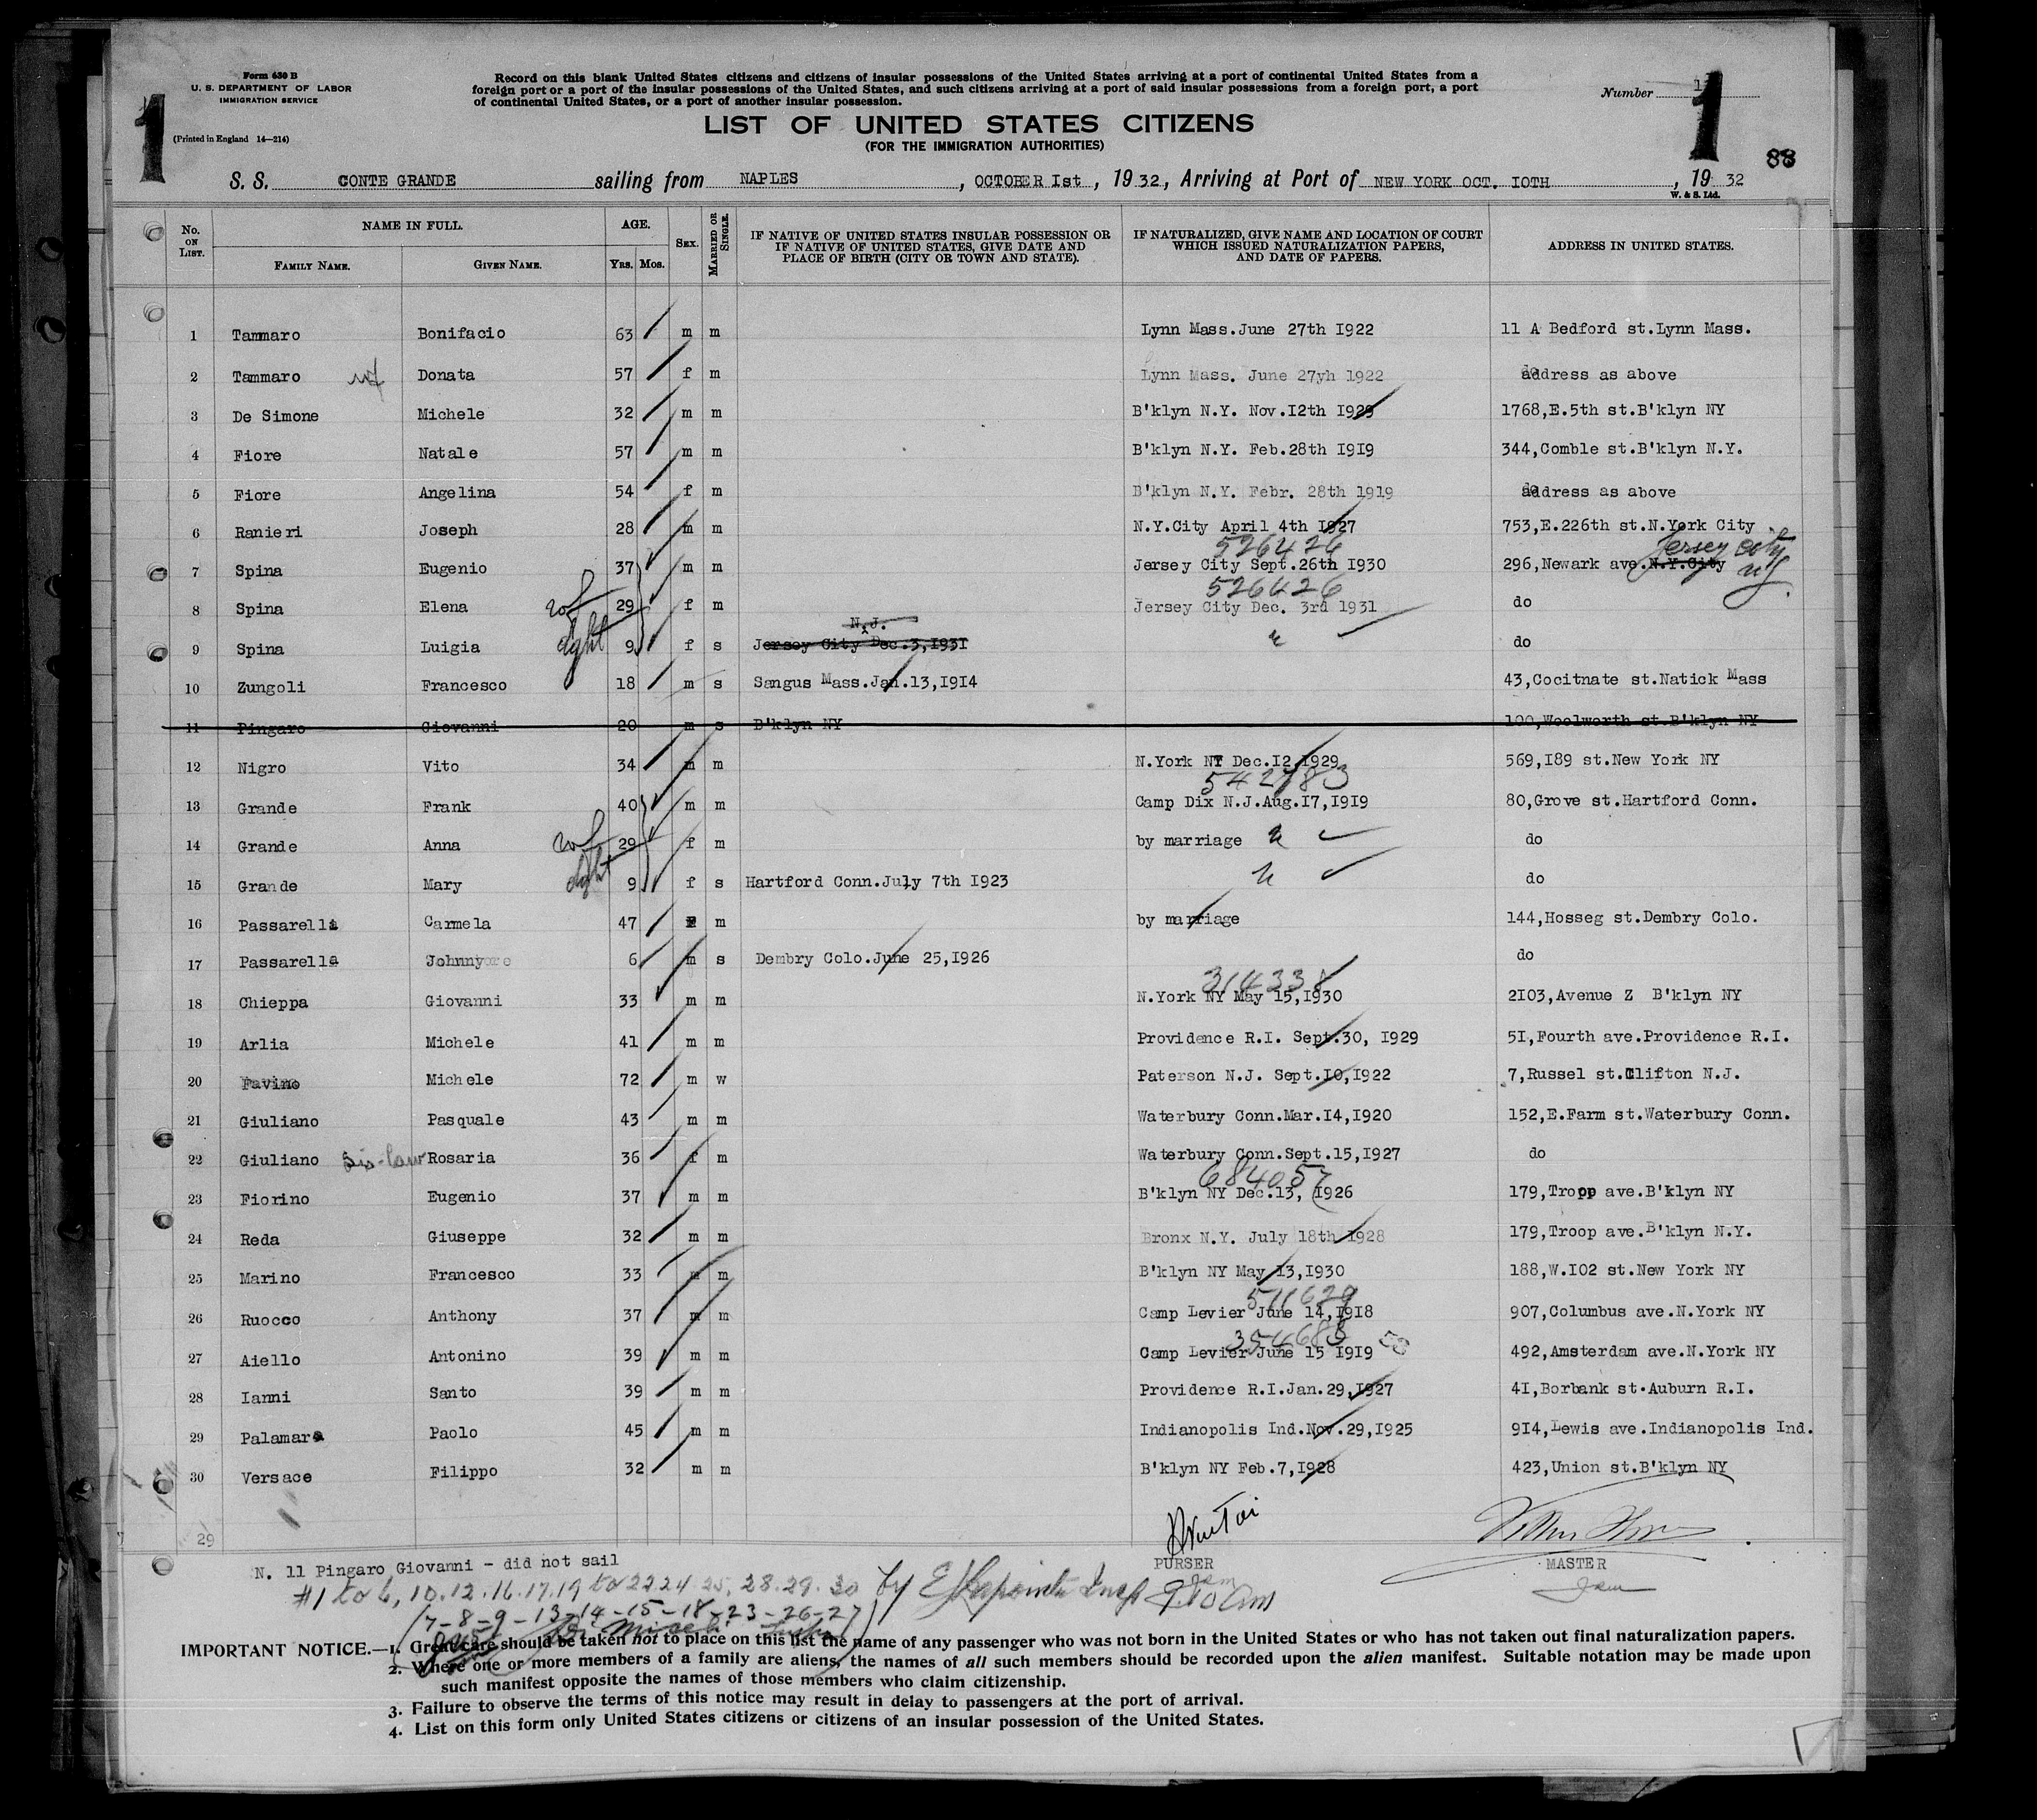 Form 630 B
U. S. DEPARTMENT OF LABOR
IMMIGRATION SERVICE
(Printed in England 14—214)
1
Record on this blank United States citizens and citizens of insular possessions of the United States arriving at a port of continental United States from a
foreign port or a port of the insular possessions of the United States, and such citizens arriving at a port of said insular possessions from a foreign port, a port
of continental United States, or a port of another insular possession.
LIST OF UNITED STATES CITIZENS
(FOR THE IMMIGRATION AUTHORITIES)
Number 1
1
88
S. S. CONTE GRANDE sailing from NAPLES, OCTOBER Ist, 1932, Arriving at Port of NEW YORK OCT. IOTH, 19 32
W. & S. Ltd.
No. ON LIST. NAME IN FULL. FAMILY NAME. GIVEN NAME. AGE. Yrs. Mos. SEX. MARRIED OR SINGLE. IF NATIVE OF UNITED STATES INSULAR POSSESSION OR IF NATIVE OF UNITED STATES, GIVE DATE AND PLACE OF BIRTH (CITY OR TOWN AND STATE). IF NATURALIZED, GIVE NAME AND LOCATION OF COURT WHICH ISSUED NATURALIZATION PAPERS, AND DATE OF PAPERS. ADDRESS IN UNITED STATES.
1 Tammaro Bonifacio 63 m m Lynn Mass.June 27th I922 11 A Bedford st.Lynn Mass.
2 Tammaro wf Donata 57 f m Lynn Mass. June 27yh 1922 address as above
3 De Simone Michele 32 m m B'klyn N.Y. Nov.I2th I929 1768,E.5th st.B'klyn NY
4 Fiore Natale 57 m m B'klyn N.Y. Feb.28th I9I9 344,Comble st.B'klyn N.Y.
5 Fiore Angelina 54 f m B'klyn N.Y. Febr. 28th 1919 address as above
6 Ranieri Joseph 28 m m N.Y.City April 4th I927 753,E.226th st.N.York City
526426 Jersey City NJ
7 Spina Eugenio 37 m m Jersey City Sept.26th I930 296,Newark ave.N.Y.City
526426
8 Spina Elena wf 29 f m Jersey City Dec. 3rd 1931 do
N.J.
9 Spina Luigia dght 9 f s Jersey City Dec.3,I93I do
10 Zungoli Francesco 18 m s Sangus Mass.Jan.13,I9I4 43,Cocitnate st.Natick Mass
11 Pingaro Giovanni 20 m s B'klyn NY 100,Woolworth st.B'klyn NY
12 Nigro Vito 34 m m N.York NY Dec.I2,I929 569,I89 st.New York NY
542783
13 Grande Frank 40 m m Camp Dix N.J.Aug.I7,I9I9 80,Grove st.Hartford Conn.
14 Grande Anna wf 29 f m by marriage do
15 Grande Mary dght 9 f s Hartford Conn.July 7th I923 do
16 Passarella Carmela 47 m by marriage 144,Hosseg st.Dembry Colo.
17 Passarella Johnny 6 m s Dembry Colo.June 25,I926 do
314338
18 Chieppa Giovanni 33 m m N.York NY May 15,I930 2I03,Avenue Z B'klyn NY
19 Arlia Michele 41 m m Providence R.I. Sept.30, I929 5I,Fourth ave.Providence R.I.
20 Favino Michele 72 m w Paterson N.J. Sept.I0,I922 7,Russel st.Clifton N.J.
21 Giuliano Pasquale 43 m m Waterbury Conn.Mar.I4,I920 152,E.Farm st.Waterbury Conn.
22 Giuliano Sis-law Rosaria 36 f m Waterbury Conn.Sept.15,I927 do
684057
23 Fiorino Eugenio 37 m m B'klyn NY Dec.13, I926 179,Tropp ave.B'klyn NY
24 Reda Giuseppe 32 m m Bronx N.Y. July 18th 1928 179,Troop ave.B'klyn N.Y.
25 Marino Francesco 33 m m B'klyn NY May 13,I930 188,W.I02 st.New York NY
511629
26 Ruocco Anthony 37 m m Camp Levier June 14,I9I8 907,Columbus ave.N.York NY
354688
27 Aiello Antonino 39 m m Camp Levier June 15 I9I9 492,Amsterdam ave.N.York NY
28 Ianni Santo 39 m m Providence R.I.Jan.29,I927 4I,Borbank st.Auburn R.I.
29 Palamara Paolo 45 m m Indianopolis Ind.Nov.29,I925 9I4,Lewis ave.Indianopolis Ind.
30 Versace Filippo 32 m m B'klyn NY Feb.7,I928 423,Union st.B'klyn NY
29
N. 11 Pingaro Giovanni - did not sail
PURSER MASTER
#1 to 6, 10.12.16.17.19 to 22 24 25, 28.29.30 by Insp 9.10 am
(7-8-9-13-14-15-18-23-26-27)
IMPORTANT NOTICE.—1. Great care should be taken not to place on this list the name of any passenger who was not born in the United States or who has not taken out final naturalization papers.
2. Where one or more members of a family are aliens, the names of all such members should be recorded upon the alien manifest. Suitable notation may be made upon
such manifest opposite the names of those members who claim citizenship.
3. Failure to observe the terms of this notice may result in delay to passengers at the port of arrival.
4. List on this form only United States citizens or citizens of an insular possession of the United States.